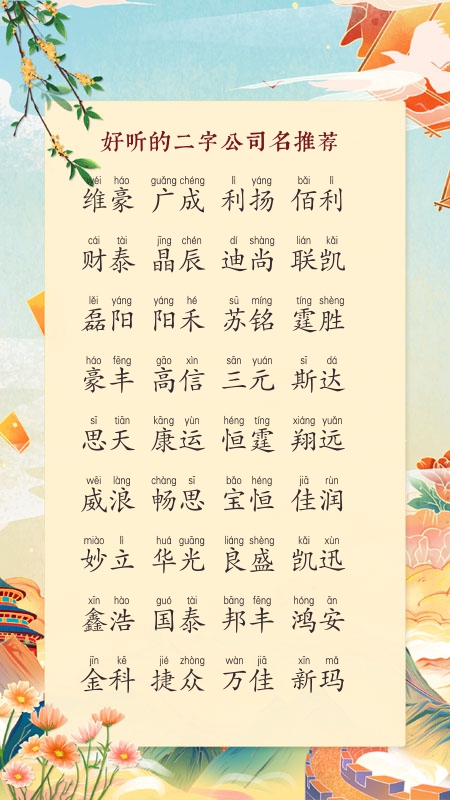 好听的二字公司名推荐
wéi háo guǎng chéng lì yáng bǎi lì
维豪 广成 利扬 佰利
cái tài jīng chén dí shàng lián kǎi
财泰 晶辰 迪尚 联凯
lěi yáng yáng hé sū míng tíng shèng
磊阳 阳禾 苏铭 霆胜
háo fēng gāo xìn sān yuán sī dá
豪丰 高信 三元 斯达
sī tiān kāng yùn héng tíng xiáng yuǎn
思天 康运 恒霆 翔远
wēi làng chàng sī bǎo héng jiā rùn
威浪 畅思 宝恒 佳润
miào lì huá guāng liáng shèng kǎi xùn
妙立 华光 良盛 凯迅
xīn hào guó tài bāng fēng hóng ān
鑫浩 国泰 邦丰 鸿安
jīn kē jié zhòng wàn jiā xīn mǎ
金科 捷众 万佳 新玛